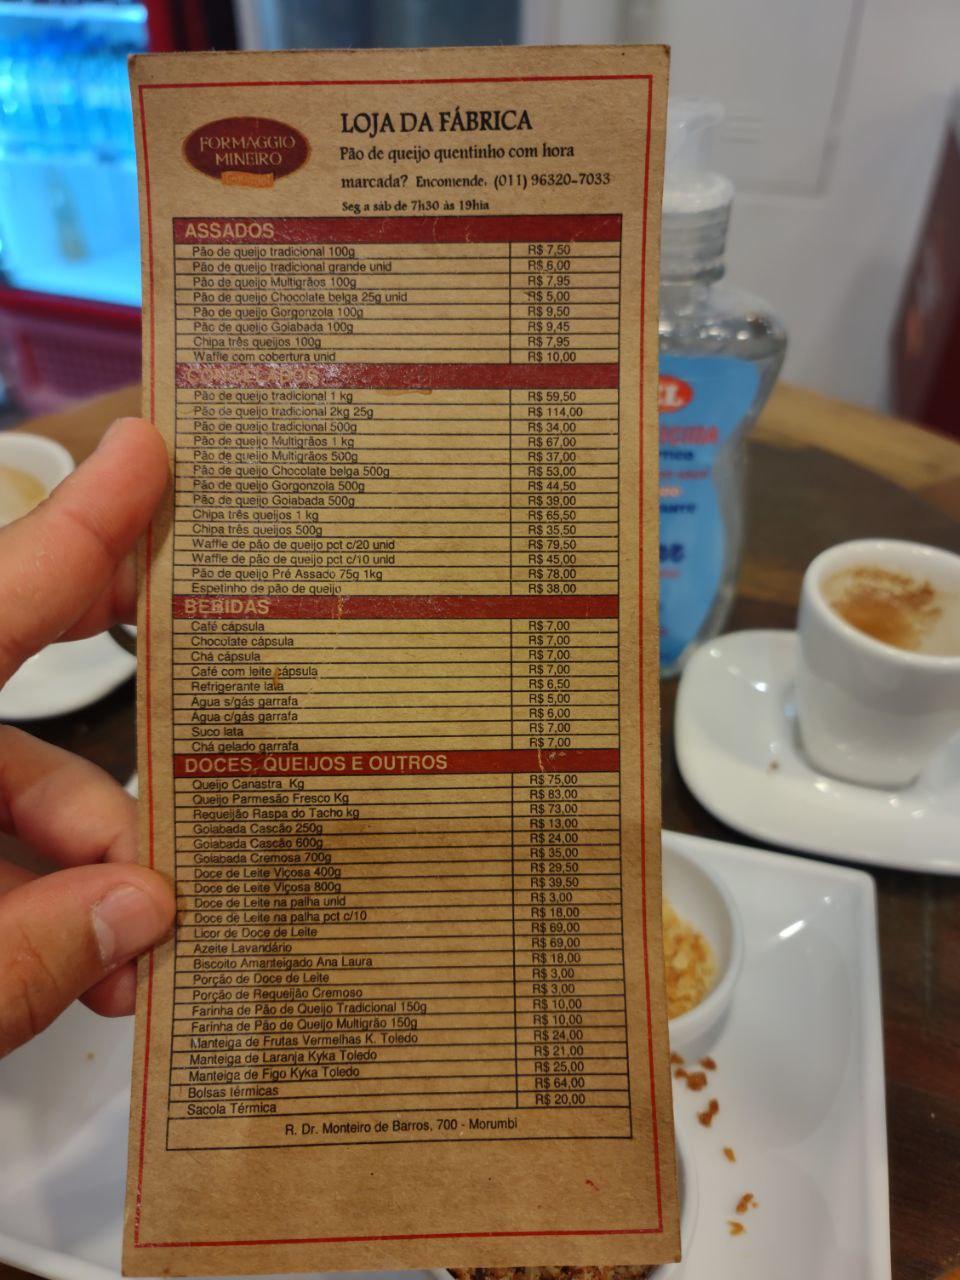 FORMAGGIO
MINEIRO
LOJA DA FÁBRICA
Pão de queijo quentinho com hora
marcada? Encomende: (011) 96320-7033
Seg a sáb de 7h30 às 19hia
ASSADOS
Pão de queijo tradicional 100g R$ 7,50
Pão de queijo tradicional grande unid R$ 6,00
Pão de queijo Multigrãos 100g R$ 7,95
Pão de queijo Chocolate belga 25g unid R$ 5,00
Pão de queijo Gorgonzola 100g R$ 9,50
Pão de queijo Goiabada 100g R$ 9,45
Chipa três queijos 100g R$ 7,95
Waffle com cobertura unid R$ 10,00
CONGELADOS
Pão de queijo tradicional 1 kg R$ 59,50
Pão de queijo tradicional 2kg 25g R$ 114,00
Pão de queijo tradicional 500g R$ 34,00
Pão de queijo Multigrãos 1 kg R$ 67,00
Pão de queijo Multigrãos 500g R$ 37,00
Pão de queijo Chocolate belga 500g R$ 53,00
Pão de queijo Gorgonzola 500g R$ 44,50
Pão de queijo Goiabada 500g R$ 39,00
Chipa três queijos 1 kg R$ 65,50
Chipa três queijos 500g R$ 35,50
Waffle de pão de queijo pct c/20 unid R$ 79,50
Waffle de pão de queijo pct c/10 unid R$ 45,00
Pão de queijo Pré Assado 75g 1kg R$ 78,00
Espetinho de pão de queijo R$ 38,00
BEBIDAS
Café cápsula R$ 7,00
Chocolate cápsula R$ 7,00
Chá cápsula R$ 7,00
Café com leite cápsula R$ 7,00
Refrigerante lata R$ 6,50
Água s/gás garrafa R$ 5,00
Água c/gás garrafa R$ 6,00
Suco lata R$ 7,00
Chá gelado garrafa R$ 7,00
DOCES, QUEIJOS E OUTROS
Queijo Canastra Kg R$ 75,00
Queijo Parmesão Fresco Kg R$ 83,00
Requeijão Raspa do Tacho kg R$ 73,00
Goiabada Cascão 250g R$ 13,00
Goiabada Cascão 600g R$ 24,00
Goiabada Cremosa 700g R$ 35,00
Doce de Leite Viçosa 400g R$ 29,50
Doce de Leite Viçosa 800g R$ 39,50
Doce de Leite na palha unid R$ 3,00
Doce de Leite na palha pct c/10 R$ 18,00
Licor de Doce de Leite R$ 69,00
Azeite Lavandário R$ 69,00
Biscoito Amanteigado Ana Laura R$ 18,00
Porção de Doce de Leite R$ 3,00
Porção de Requeijão Cremoso R$ 3,00
Farinha de Pão de Queijo Tradicional 150g R$ 10,00
Farinha de Pão de Queijo Multigrão 150g R$ 10,00
Manteiga de Frutas Vermelhas K. Toledo R$ 24,00
Manteiga de Laranja Kyka Toledo R$ 21,00
Manteiga de Figo Kyka Toledo R$ 25,00
Bolsas térmicas R$ 64,00
Sacola Térmica R$ 20,00
R. Dr. Monteiro de Barros, 700 - Morumbi